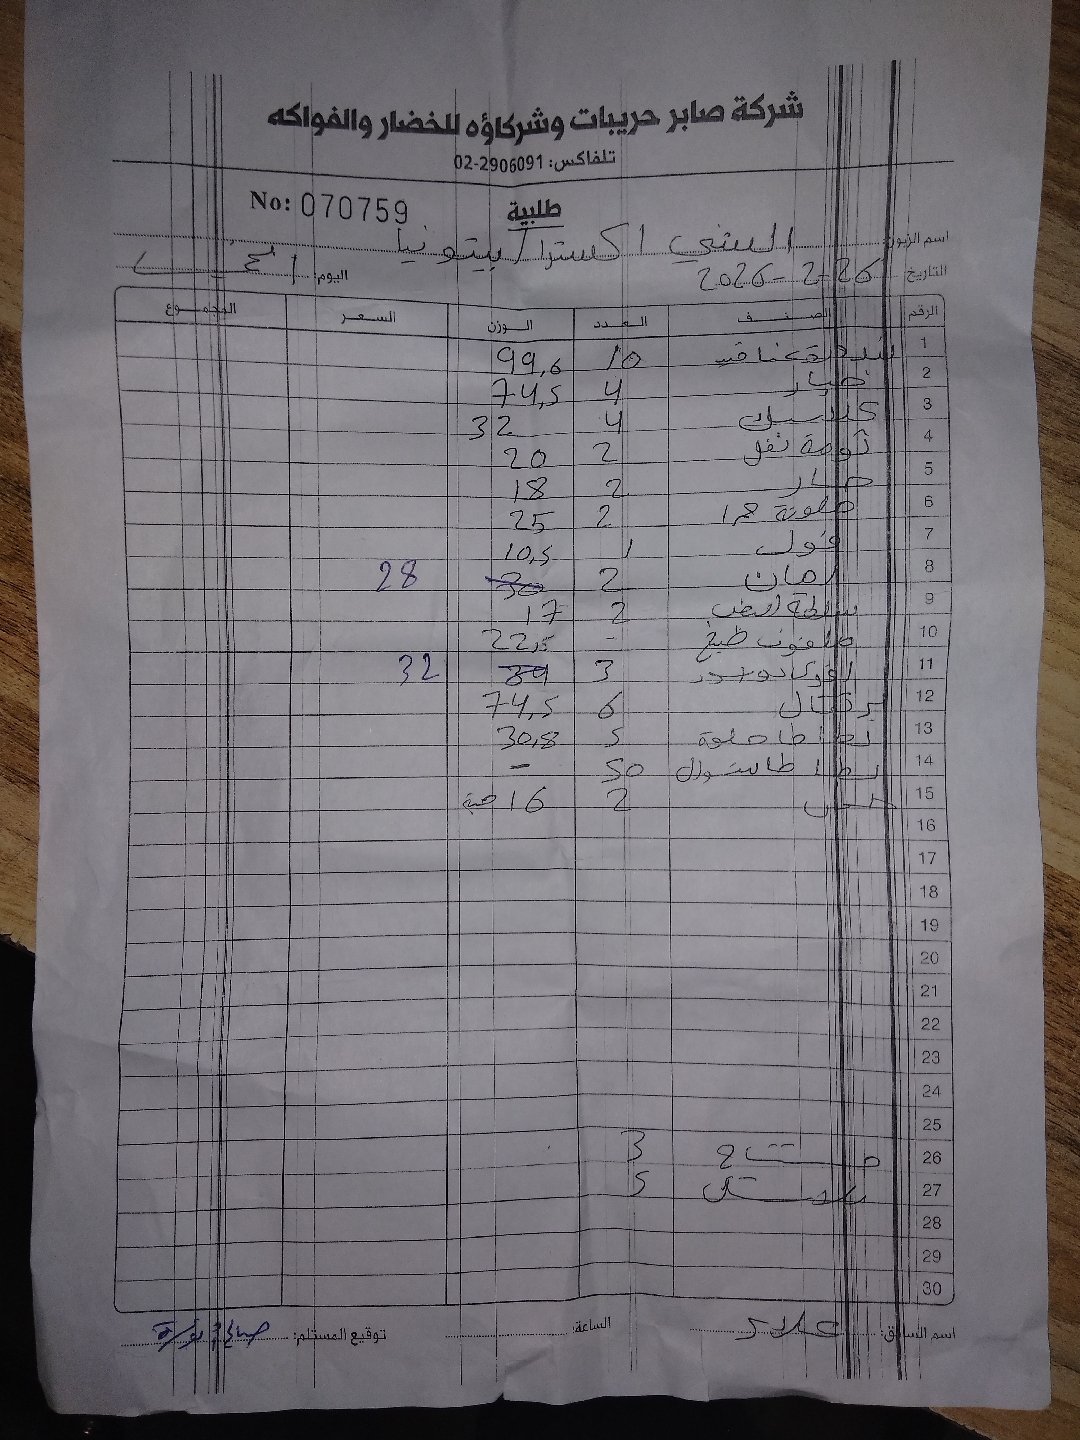 شركة صابر حريبات وشركاؤه للخضار والفواكه
تلفاكس: 02-2906091
No: 070759
طلبية
اسم الزبون: السني اكسترا / بيتونيا
التاريخ 26-2-2026 اليوم:
الرقم الصنف العدد الوزن السعر المجموع
1 بندورة عناقيد 10 99,6
2 خيار 4 74,5
3 4 32
4 ثومة نفل 2 20
5 2 18
6 ملونة حمرا 2 25
7 فول 1 10,5
8 رمان 2 30 28
9 2 17
10 ملفوف طبخ - 22,5
11 افوكادو 3 34 32
12 برتقال 6 74,5
13 بطاطا حلوة 5 30,8
14 بطاطا 50 -
15 2 16 حبة
16
17
18
19
20
21
22
23
24
25
26 3
27 5
28
29
30
اسم السائق: علاء الساعة: توقيع المستلم: